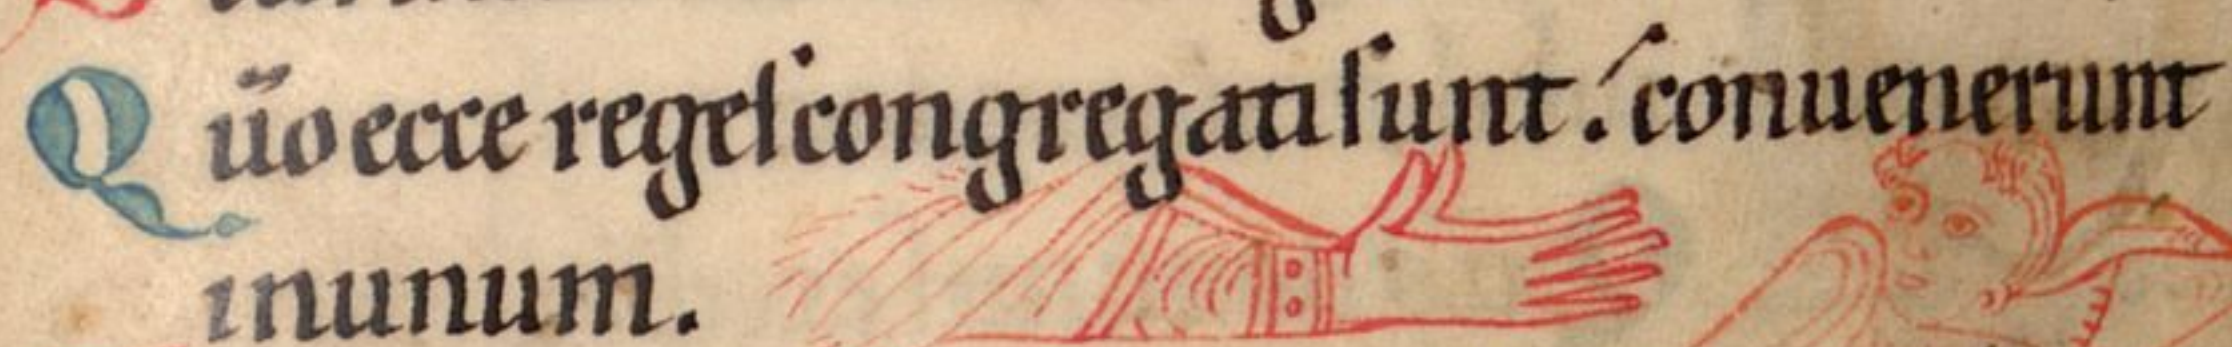 Qūo ecce reges congregati sunt. conuenerunt
in unum.